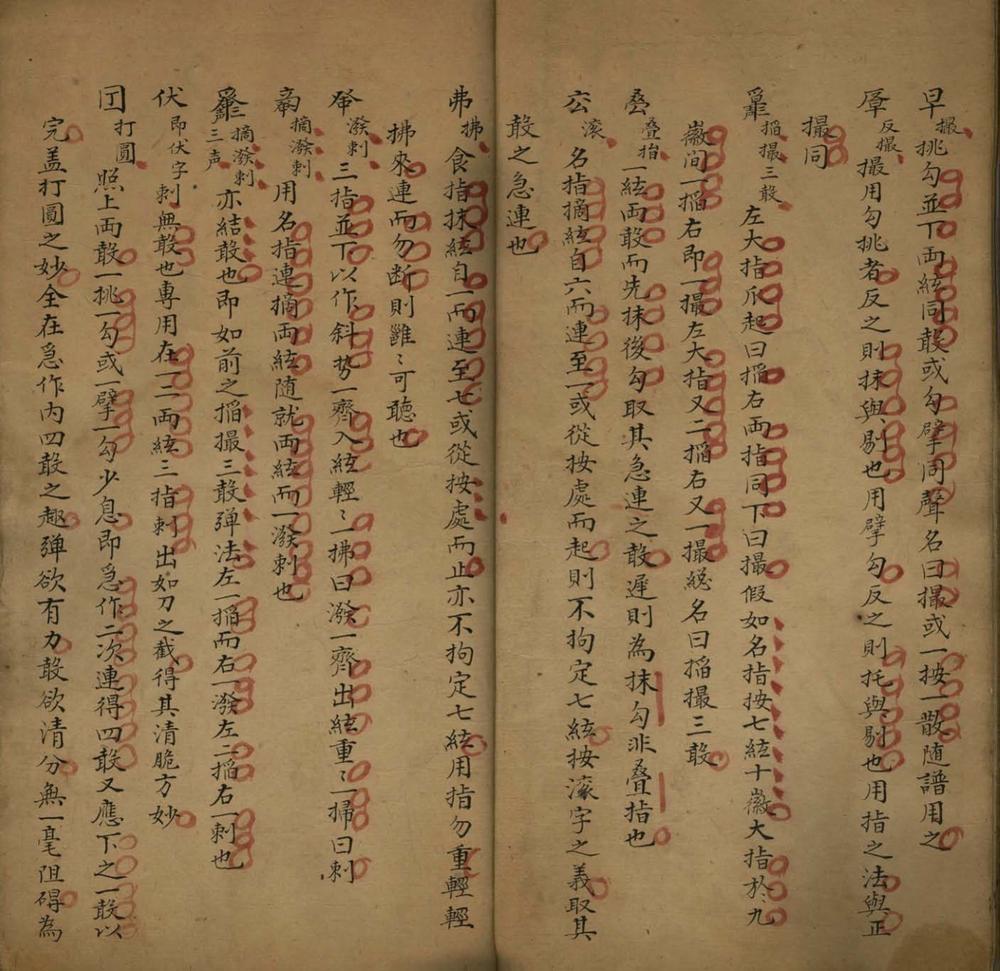 早 撮 挑勾並下兩絃同敲或勾擘同聲名曰撮或一按一散隨譜用之
反撮 撮用勾挑者反之則抹與剔也用擘勾反之則托與剔也用指之法與正
撮同
搯撮三敲 左大指爪起曰搯右兩指同下曰撮假如名指按七絃十徽大指於九
徽間一搯右即一撮左大指又二搯右又一撮総名曰搯撮三敲
叠指 一絃両敲而先抹後勾取其急連之敲遲則為抹勾非叠指也
滚 名指摘絃自六而連至一或從按處而起則不拘定七絃按滚字之義取其
敲之急連也
弗 拂 食指抹絃自一而連至七或從按處而止亦不拘定七絃用指勿重輕輕
拂來連而勿断則雝〻可聽也
潑剌 三指並下以作斜势一齊入絃輕〻一拂曰潑一齊出絃重〻一掃曰剌
摘潑剌 用名指連摘両絃随就両絃而一潑剌也
摘潑剌三声 亦結敲也即如前之搯撮三敲弹法左一搯而右一潑左二搯右一剌也
伏 即伏字 剌無敲也專用在一二両絃三指剌出如刀之截得其清脆方妙
打圓 照上両敲一挑一勾或一擘一勾少息即急作二次連得四敲又應下之一敲以
完盖打圓之妙全在急作内四敲之趣弹欲有力敲欲清分無一毫阻碍為